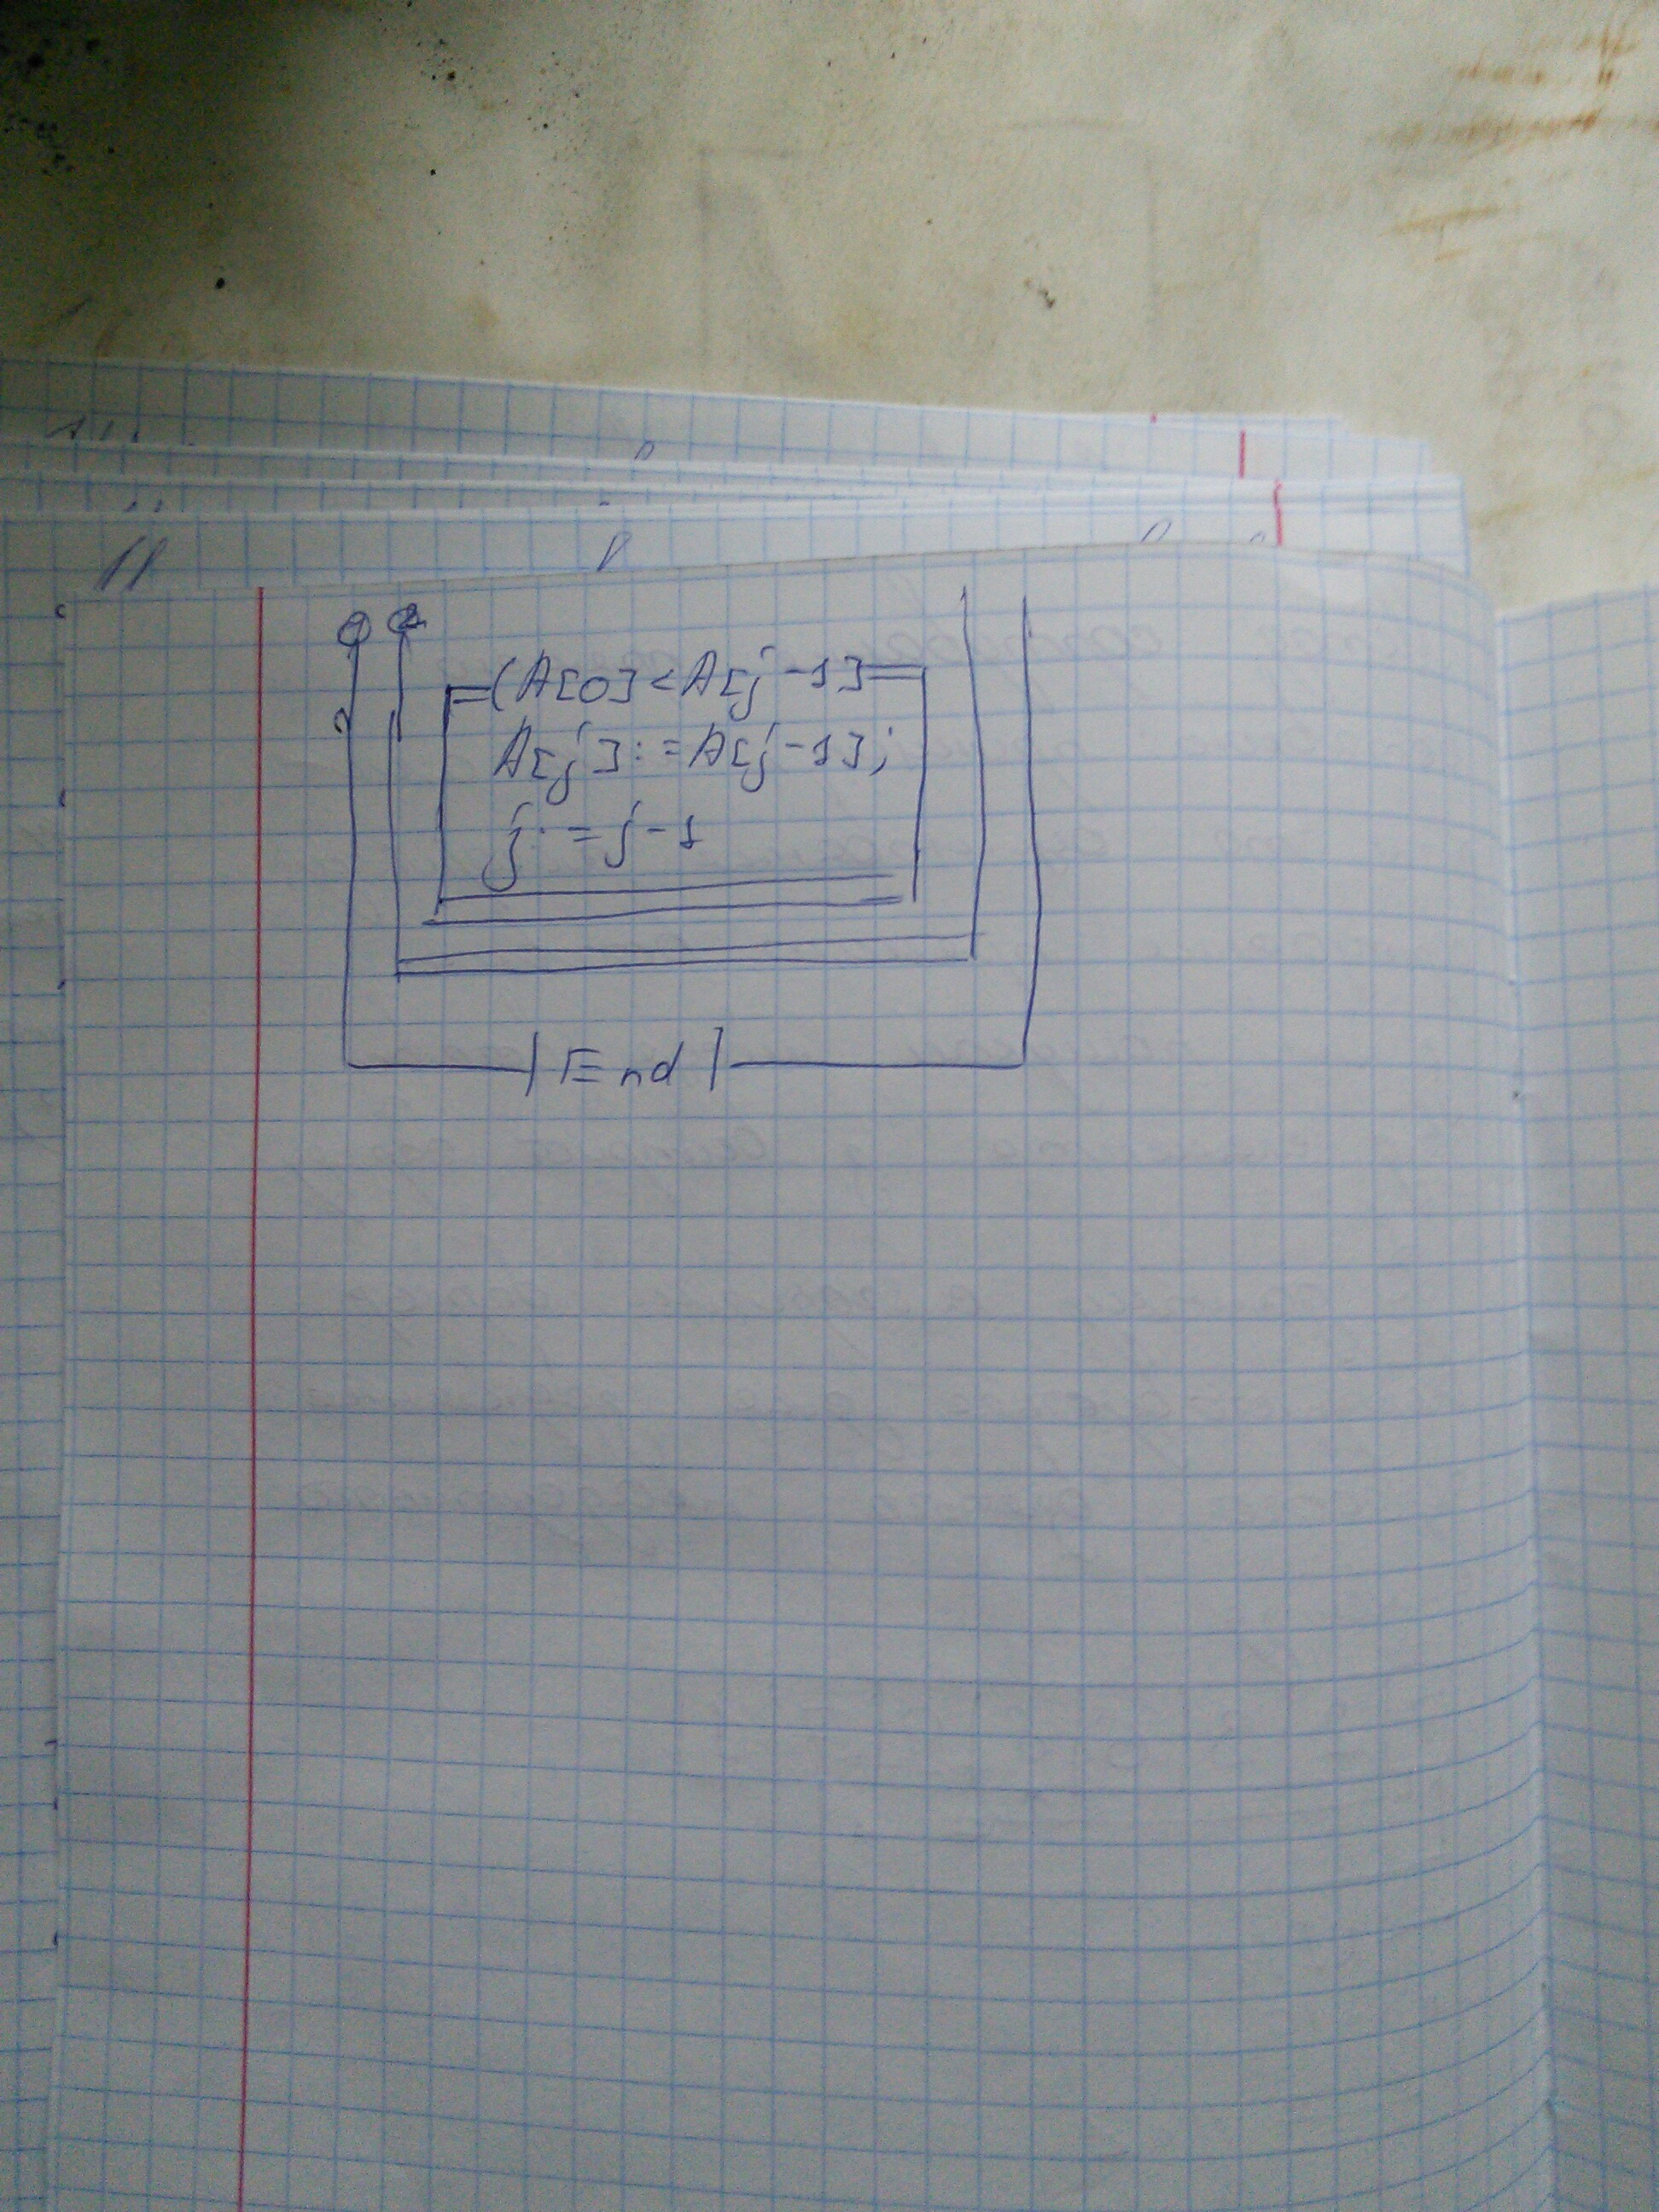 (A[0]<A[j-1]
A[j]:=A[j-1];
j:=j-1
End